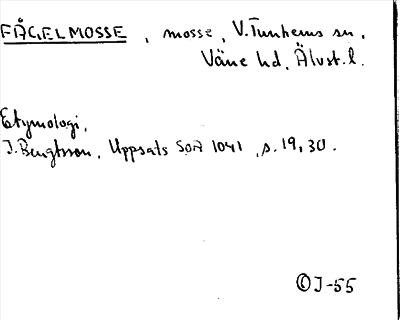 FÅGELMOSSE, mosse, V. Tunhems sn,
Väne hd, Älvsb. l.
Etymologi,
J. Bengtsson, Uppsats SOA 1041, s. 19, 30.
© J-55